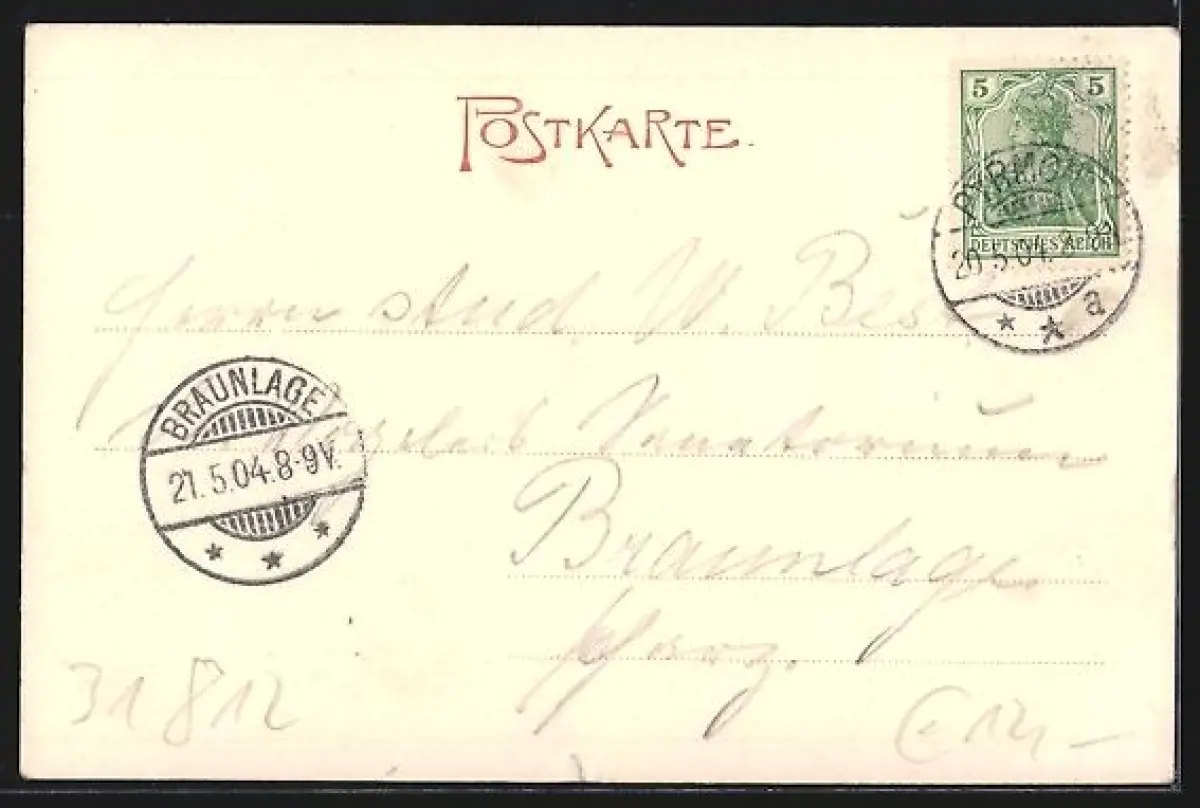 POSTKARTE.
5 5
DEUTSCHES REICH
PYRMONT
20.5.04. 8-9
a
Herrn stud. W.
Sanatorium
BRAUNLAGE
21.5.04.8-9V.
Braunlage
Harz.
31812
12,-